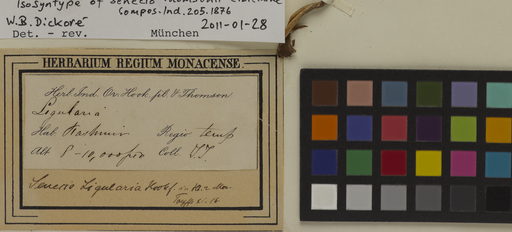 Isosyntype of Senecio thomsonii Clarke
Compos. Ind. 205. 1876
W.B. Dickoré 2011-01-28
Det. - rev. München
HERBARIUM REGIUM MONACENSE.
Herb. Ind. Or. Hook. fil. & Thomson
Ligularia
Hab. Kashmir Regio temp
Alt 8-10,000 ped Coll. T.T.
Senecio Ligularia Hook f.